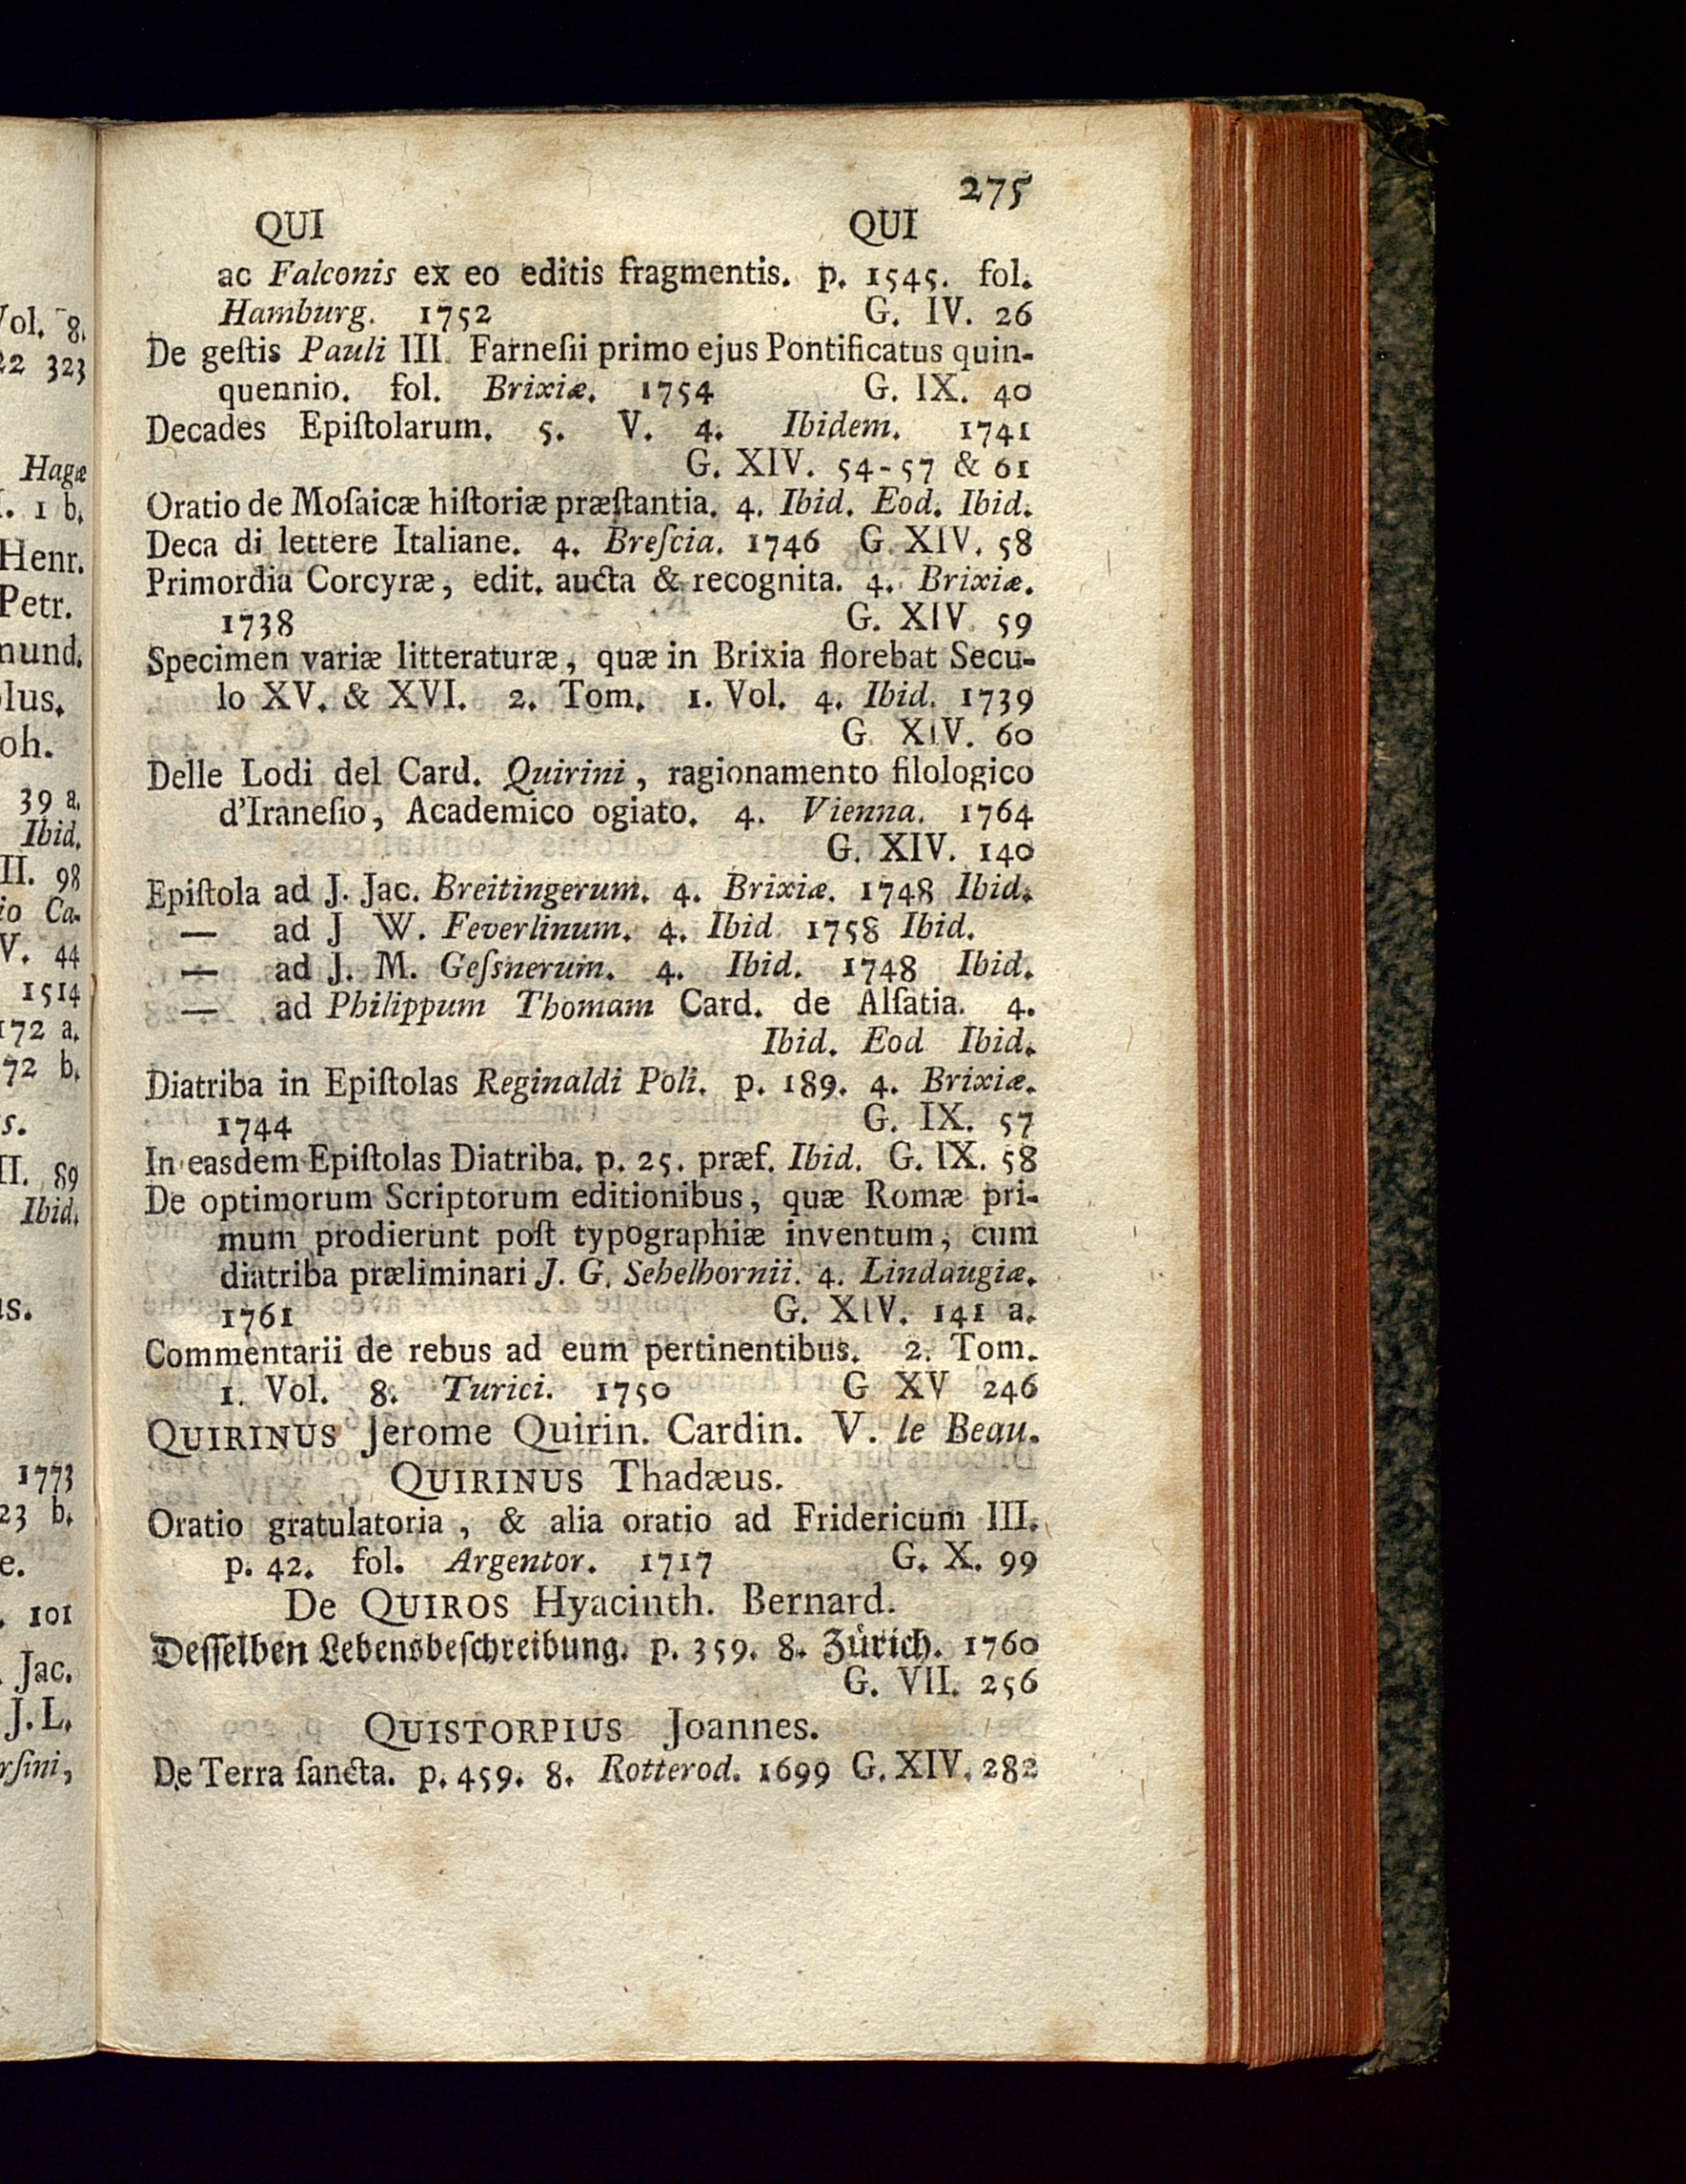 275
QUI QUI
ac Falconis ex eo editis fragmentis. p. 1545. fol.
Hamburg. 1752 G. IV. 26
De geſtis Pauli III. Farneſii primo ejus Pontificatus quin-
quennio. fol. Brixiæ. 1754 G. IX. 40
Decades Epiſtolarum. 5. V. 4. Ibidem. 1741
G. XIV. 54-57 & 61
Oratio de Moſaicæ hiſtoriæ præſtantia. 4. Ibid. Eod. Ibid.
Deca di lettere Italiane. 4. Breſcia. 1746 G. XIV. 58
Primordia Corcyræ, edit. aucta & recognita. 4. Brixiæ.
1738 G. XIV. 59
Specimen variæ litteraturæ, quæ in Brixia florebat Secu-
lo XV. & XVI. 2. Tom. 1. Vol. 4. Ibid. 1739
G. XIV. 60
Delle Lodi del Card. Quirini, ragionamento filologico
d'Iraneſio, Academico ogiato. 4. Vienna. 1764
G. XIV. 140
Epiſtola ad J. Jac. Breitingerum. 4. Brixiæ. 1748 Ibid.
— ad J W. Feverlinum. 4. Ibid. 1758 Ibid.
— ad J. M. Geſsnerum. 4. Ibid. 1748 Ibid.
— ad Philippum Thomam Card. de Alſatia. 4.
Ibid. Eod Ibid.
Diatriba in Epiſtolas Reginaldi Poli. p. 189. 4. Brixiæ.
1744 G. IX. 57
In easdem Epiſtolas Diatriba. p. 25. præf. Ibid. G. IX. 58
De optimorum Scriptorum editionibus, quæ Romæ pri-
mum prodierunt poſt typographiæ inventum, cum
diatriba præliminari J. G. Sehelhornii. 4. Lindaugiæ.
1761 G. XIV. 141 a.
Commentarii de rebus ad eum pertinentibus. 2. Tom.
1. Vol. 8. Turici. 1750 G XV 246
QUIRINUS Jerome Quirin. Cardin. V. le Beau.
QUIRINUS Thadæus.
Oratio gratulatoria, & alia oratio ad Fridericum III.
p. 42. fol. Argentor. 1717 G. X. 99
De QUIROS Hyacinth. Bernard.
Deſſelben Lebensbeſchreibung. p. 359. 8. Zürich. 1760
G. VII. 256
QUISTORPIUS Joannes.
De Terra ſancta. p. 459. 8. Rotterod. 1699 G. XIV. 282